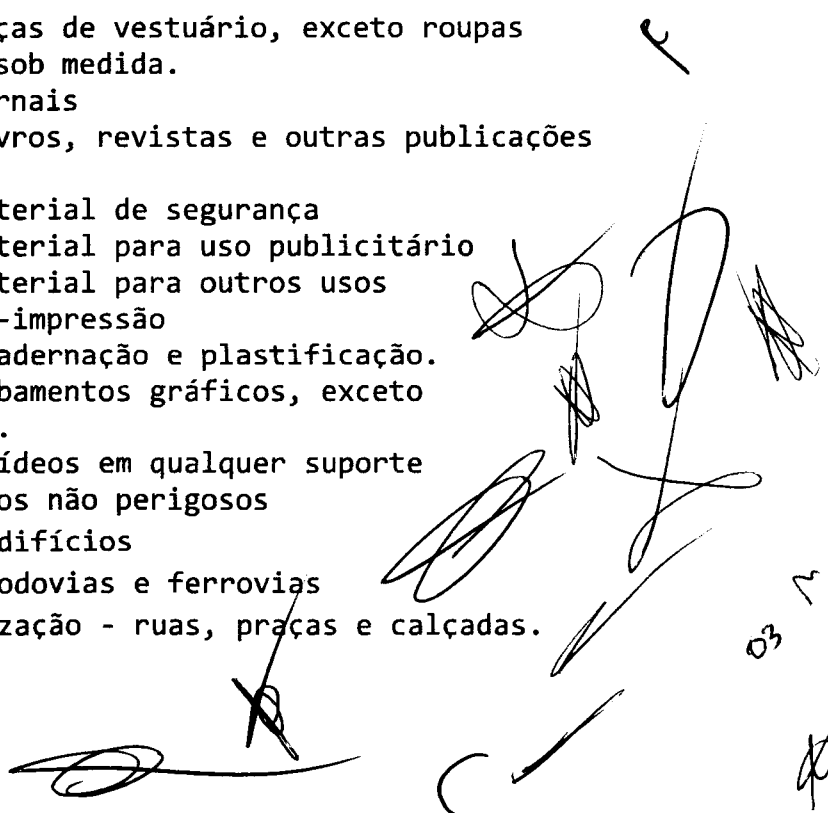 ças de vestuário, exceto roupas
sob medida.
rnais
vros, revistas e outras publicações
terial de segurança
terial para uso publicitário
terial para outros usos
-impressão
adernação e plastificação.
bamentos gráficos, exceto
.
ídeos em qualquer suporte
os não perigosos
difícios
odovias e ferrovias
zação - ruas, praças e calçadas.
03